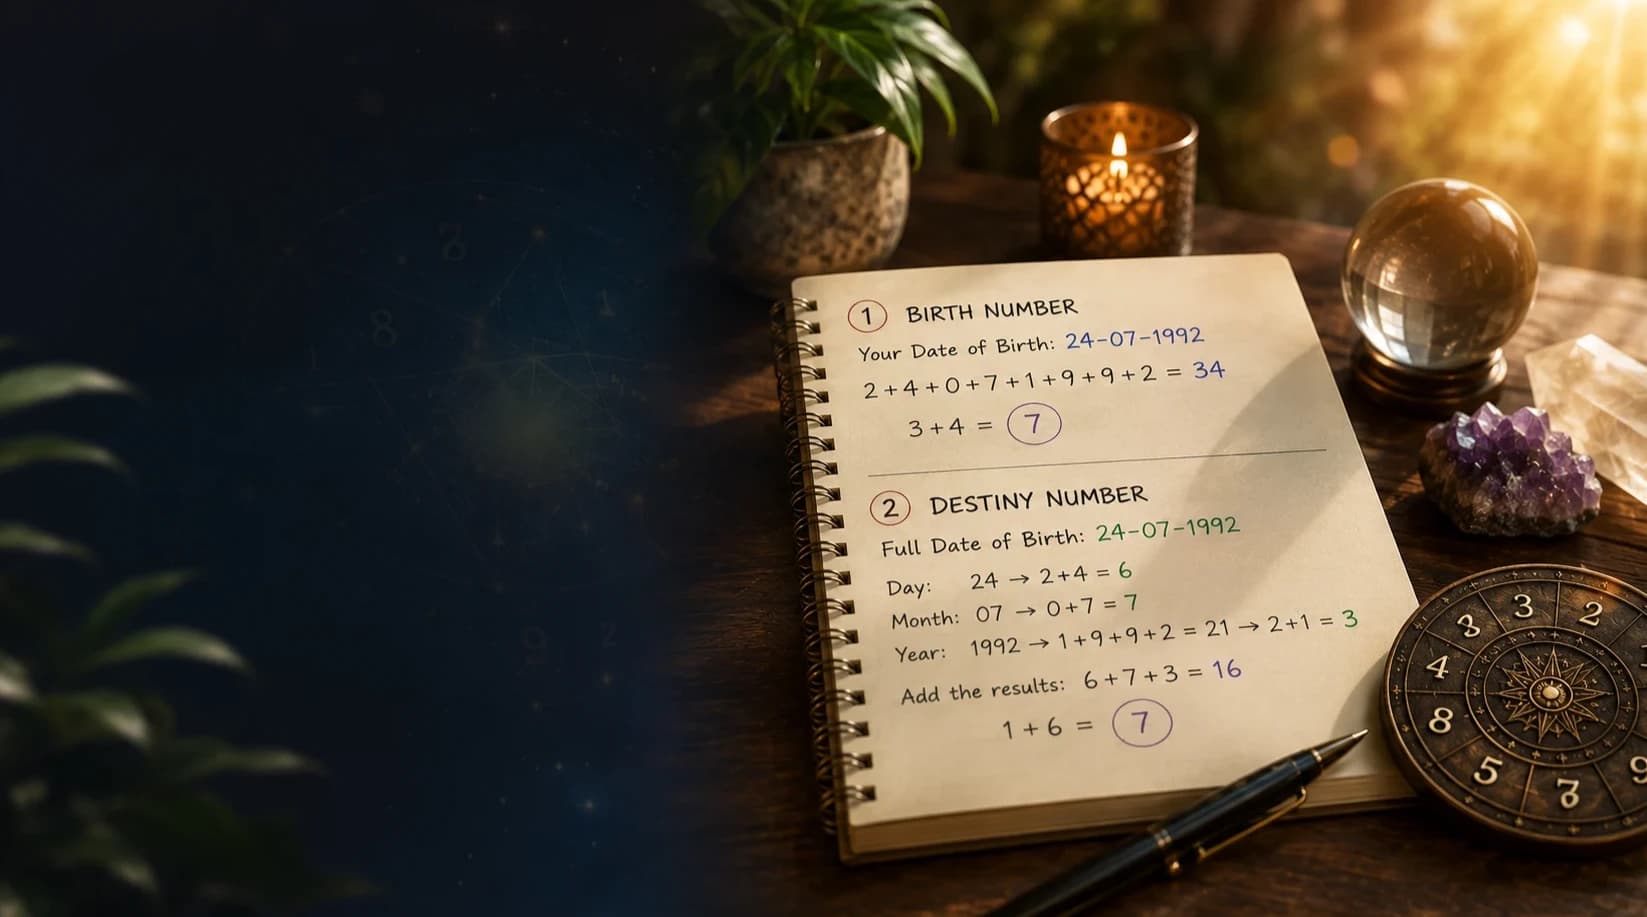 1 BIRTH NUMBER
Your Date of Birth: 24-07-1992
2+4+0+7+1+9+9+2 = 34
3+4 = 7
2 DESTINY NUMBER
Full Date of Birth: 24-07-1992
Day: 24 → 2+4 = 6
Month: 07 → 0+7 = 7
Year: 1992 → 1+9+9+2 = 21 → 2+1 = 3
Add the results: 6+7+3 = 16
1+6 = 7
3 3 2
4
8
5